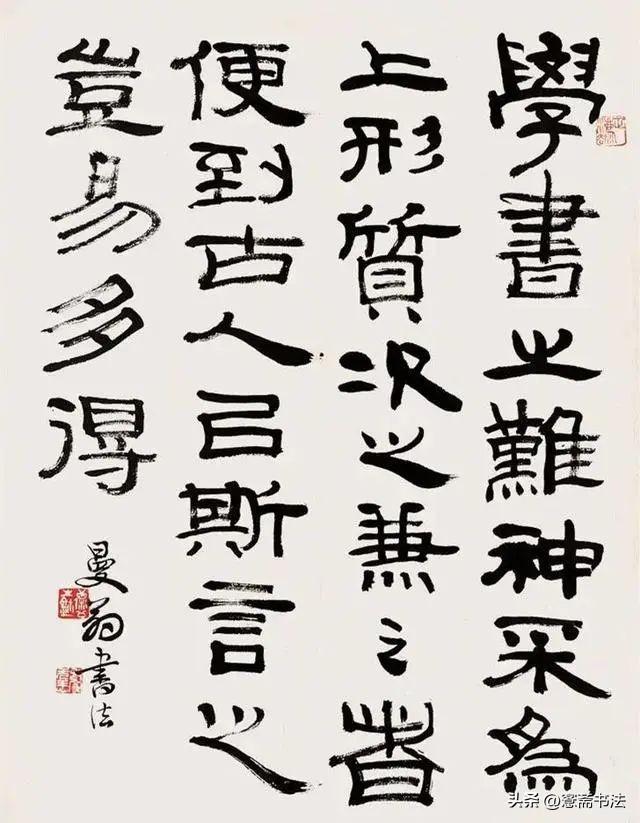 學書之難神采為
上形質次之兼之者
便到古人以斯言之
豈易多得
曼翁書法
头条@愙斋书法